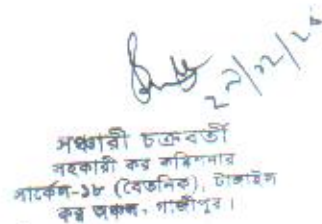 ২৭/১২/২৪
সঞ্চারী চক্রবর্তী
সহকারী কর কমিশনার
সার্কেল-১৮ (বৈতনিক), টাঙ্গাইল
কর অঞ্চল, গাজীপুর।